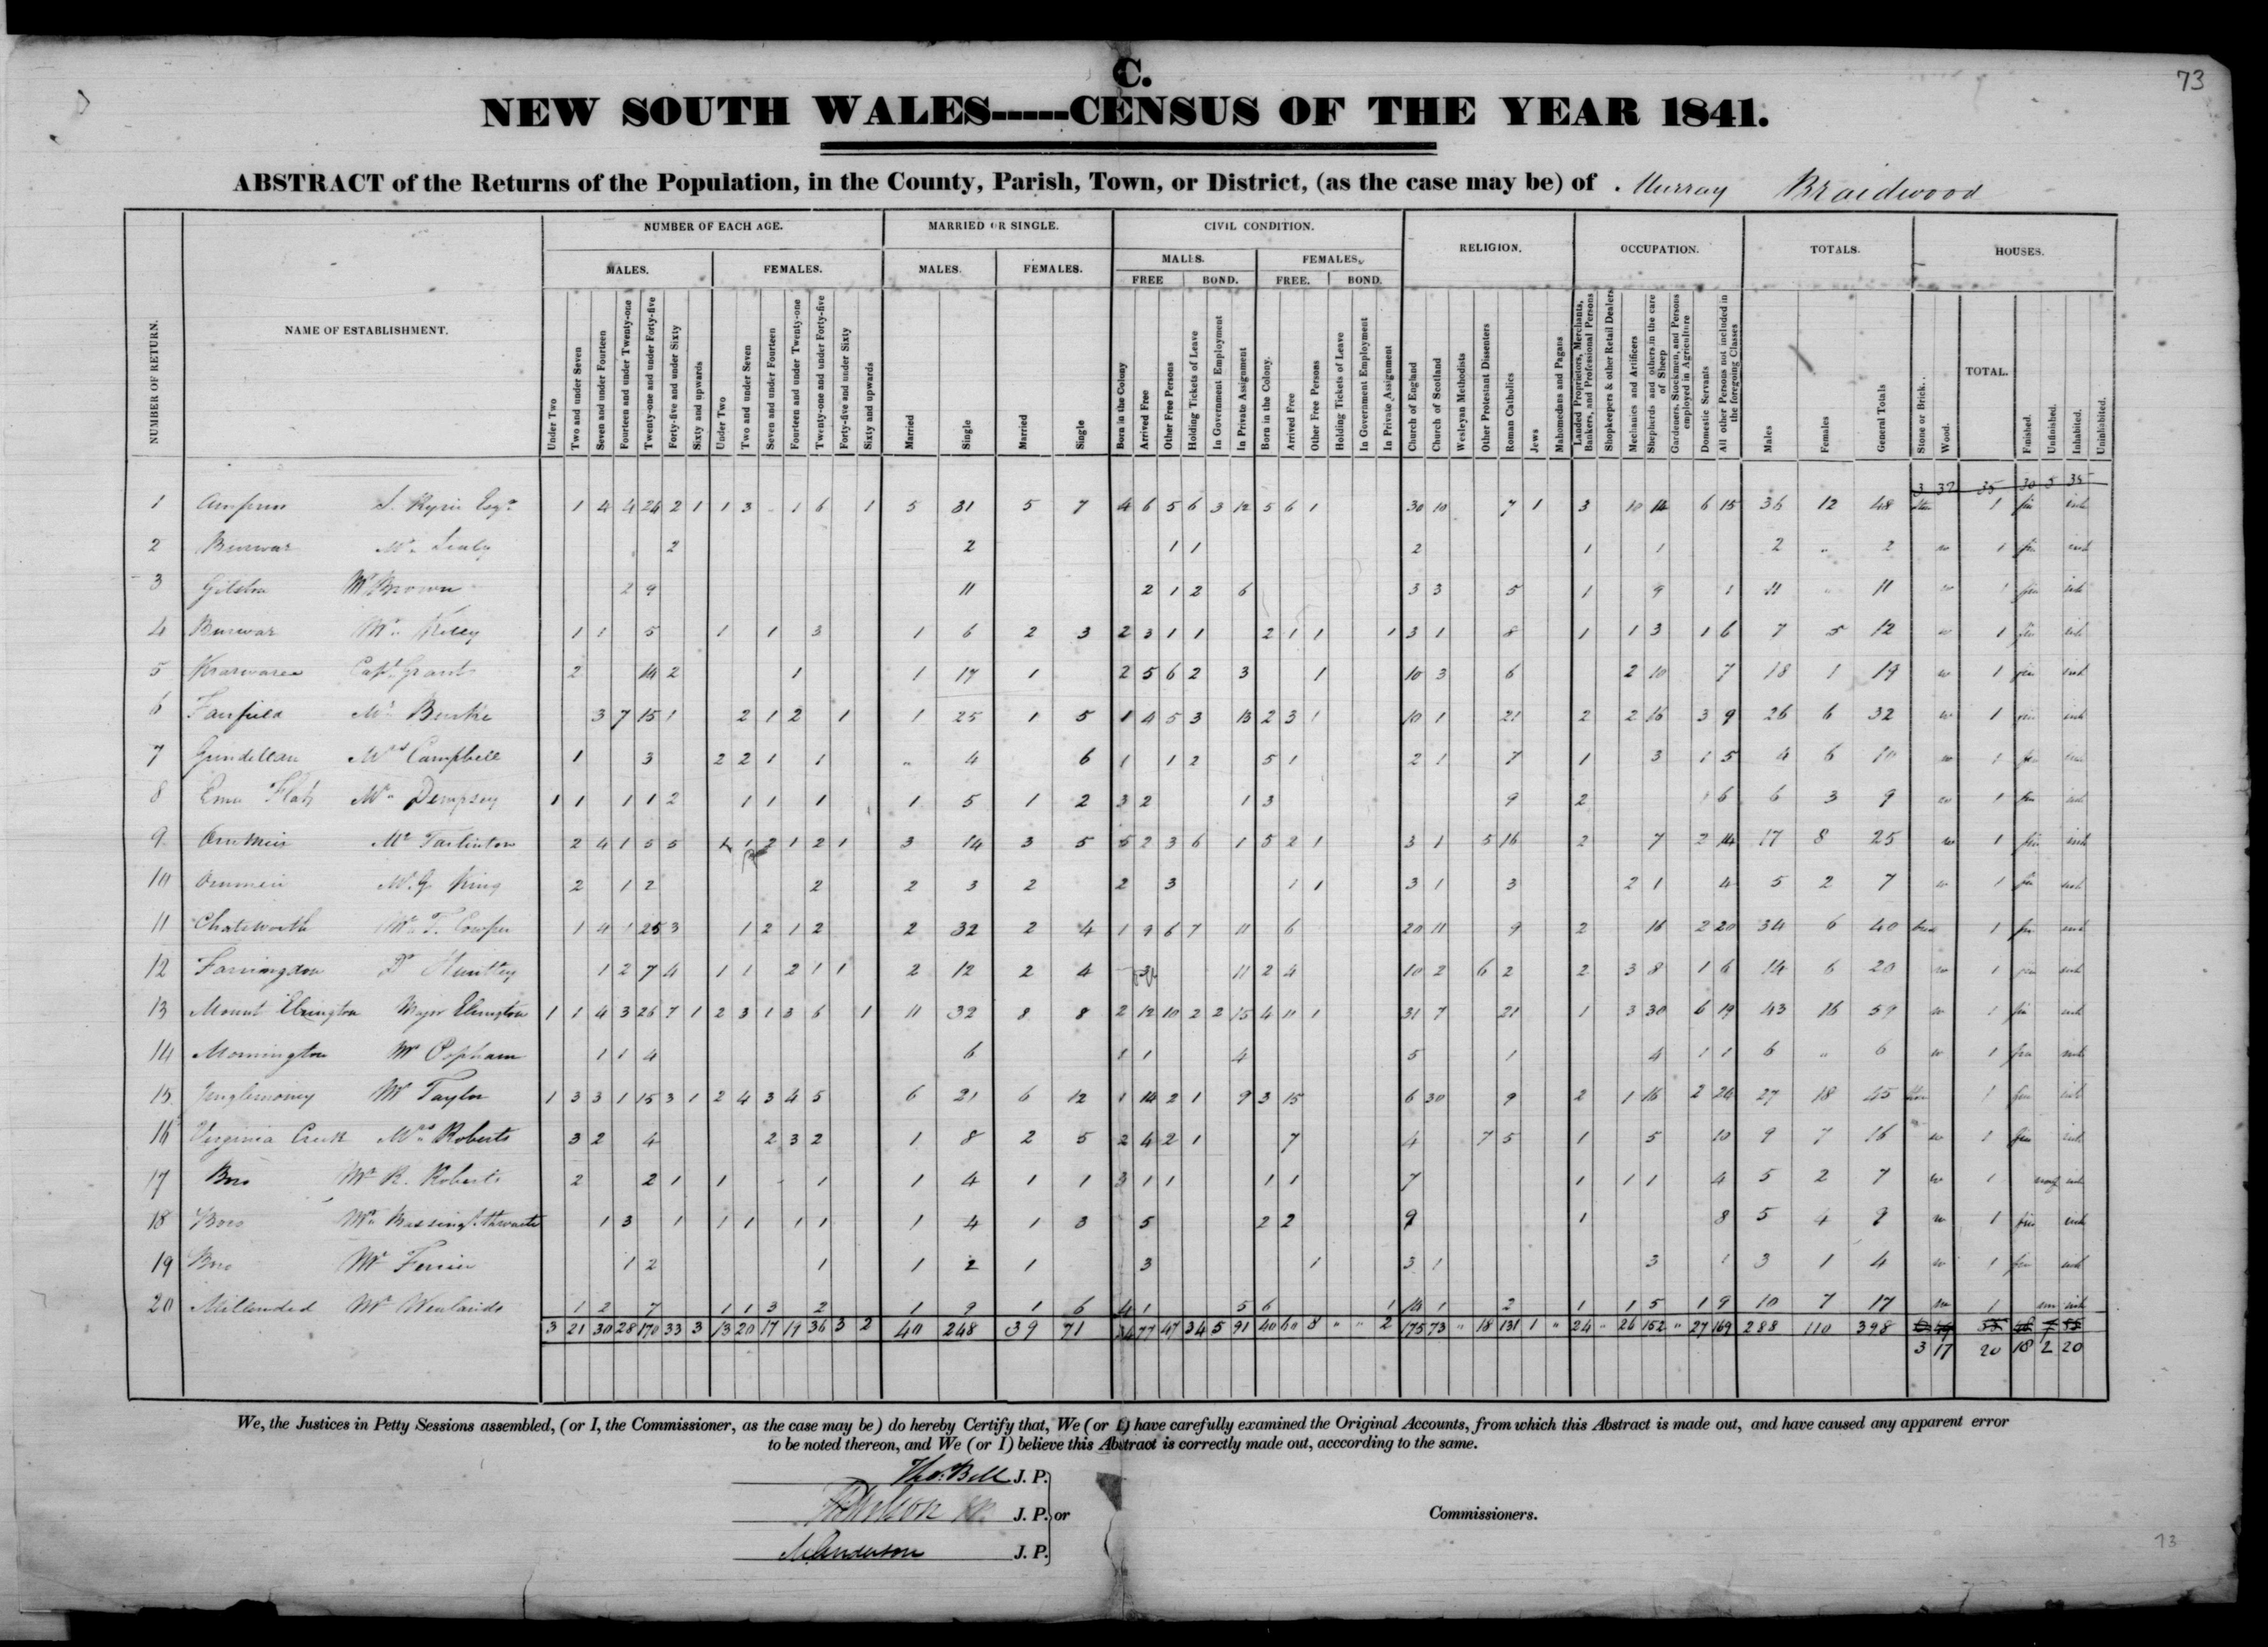 73
C.
NEW SOUTH WALES-----CENSUS OF THE YEAR 1841.
ABSTRACT of the Returns of the Population, in the County, Parish, Town, or District, (as the case may be) of Murray Braidwood
NUMBER OF RETURN.
NAME OF ESTABLISHMENT.
NUMBER OF EACH AGE.
MARRIED OR SINGLE.
CIVIL CONDITION.
RELIGION.
OCCUPATION.
TOTALS.
HOUSES.
MALES.
FEMALES.
MALES.
FEMALES.
MALES.
FEMALES.
FREE
BOND.
FREE.
BOND.
Under Two
Two and under Seven
Seven and under Fourteen
Fourteen and under Twenty-one
Twenty-one and under Forty-five
Forty-five and under Sixty
Sixty and upwards
Under Two
Two and under Seven
Seven and under Fourteen
Fourteen and under Twenty-one
Twenty-one and under Forty-five
Forty-five and under Sixty
Sixty and upwards
Married
Single
Married
Single
Born in the Colony
Arrived Free
Other Free Persons
Holding Tickets of Leave
In Government Employment
In Private Assignment
Born in the Colony.
Arrived Free
Other Free Persons
Holding Tickets of Leave
In Government Employment
In Private Assignment
Church of England
Church of Scotland
Wesleyan Methodists
Other Protestant Dissenters
Roman Catholics
Jews
Mahomedans and Pagans
Landed Proprietors, Merchants, Bankers, and Professional Persons
Shopkeepers & other Retail Dealers
Mechanics and Artificers
Shepherds and others in the care of Sheep
Gardeners, Stockmen, and Persons employed in Agriculture
Domestic Servants
All other Persons not included in the foregoing Classes
Males
Females
General Totals
Stone or Brick.
Wood.
TOTAL.
Finished.
Unfinished.
Inhabited.
Uninhabited.
3 32 35 30 5 35
1 1 4 4 24 2 1 1 3 1 6 1 5 31 5 7 4 6 5 6 3 12 5 6 1 30 10 7 1 3 10 14 6 15 36 12 48 1
2 2 2 1 1 2 1 1 2 " 2 w 1
3 Mr Brown 2 9 11 2 1 2 6 3 3 5 1 9 1 11 11 w 1
4 Mr 1 1 5 1 1 3 1 6 2 3 2 3 1 1 2 1 1 1 3 1 8 1 1 3 1 6 7 5 12 w 1
5 Capt. Grant 2 14 2 1 1 17 1 2 5 6 2 3 1 10 3 6 2 10 7 18 1 19 w 1
6 Fairfield Mr Burke 3 7 15 1 2 1 2 1 1 25 1 5 1 4 5 3 13 2 3 1 10 1 21 2 2 16 3 9 26 6 32 w 1
7 Mrs Campbell 1 3 2 2 1 1 " 4 6 1 1 2 5 1 2 1 7 1 3 1 5 4 6 10 w 1
8 Emu Flat Mr Dempsey 1 1 1 1 2 1 1 1 1 5 1 2 3 2 1 3 9 2 1 6 6 3 9 w 1
9 Mr Tarlinton 2 4 1 5 5 1 1 2 1 2 1 3 14 3 5 5 2 3 6 1 5 2 1 3 1 5 16 2 7 2 14 17 8 25 w 1
10 Mr G King 2 1 2 2 2 3 2 2 3 1 1 3 1 3 2 1 4 5 2 7 w 1
11 Chatsworth Mr T. Cowper 1 4 1 25 3 1 2 1 2 2 32 2 4 1 9 6 7 11 6 20 11 9 2 16 2 20 34 6 40 1
12 Farringdon Dr Huntley 1 2 7 4 1 1 2 1 1 2 12 2 4 11 2 4 10 2 6 2 2 3 8 1 6 14 6 20 w 1
13 Mount Elrington Major Elrington 1 1 4 3 26 7 1 2 3 1 3 6 1 11 32 8 8 2 12 10 2 2 15 4 11 1 31 7 21 1 3 30 6 19 43 16 59 w 1
14 Mornington Mr Popham 1 1 4 6 1 1 4 5 1 4 1 1 6 " 6 w 1
15 Jinglemoney Mr Taylor 1 3 3 1 15 3 1 2 4 3 4 5 6 21 6 12 1 14 2 1 9 3 15 6 30 9 2 1 16 2 24 27 18 45 1
16 Virginia Creek Mrs Roberts 3 2 4 2 3 2 1 8 2 5 2 4 2 1 7 4 7 5 1 5 10 9 7 16 w 1
17 Boro Mr R. Roberts 2 2 1 1 1 1 4 1 1 3 1 1 1 1 7 1 1 1 4 5 2 7 w 1
18 Boro Mr Bassingthwaite 1 3 1 1 1 1 1 1 4 1 3 5 2 2 9 1 8 5 4 9 w 1
19 Boro Mr 1 2 1 1 2 1 3 1 3 1 3 1 3 1 4 w 1
20 Mr 1 2 7 1 1 3 2 1 9 1 6 4 1 5 6 1 14 1 2 1 1 5 1 9 10 7 17 1
3 21 30 28 170 33 3 13 20 17 19 36 3 2 40 248 39 71 34 77 47 34 5 91 40 60 8 " " 2 175 73 " 18 131 1 " 24 " 26 152 " 27 169 288 110 398
3 17 20 18 2 20
We, the Justices in Petty Sessions assembled, (or I, the Commissioner, as the case may be) do hereby Certify that, We (or I) have carefully examined the Original Accounts, from which this Abstract is made out, and have caused any apparent error
to be noted thereon, and We (or I) believe this Abstract is correctly made out, acccording to the same.
Thos. Bell J. P.
J. P. or
Commissioners.
McAnderson J. P.
73